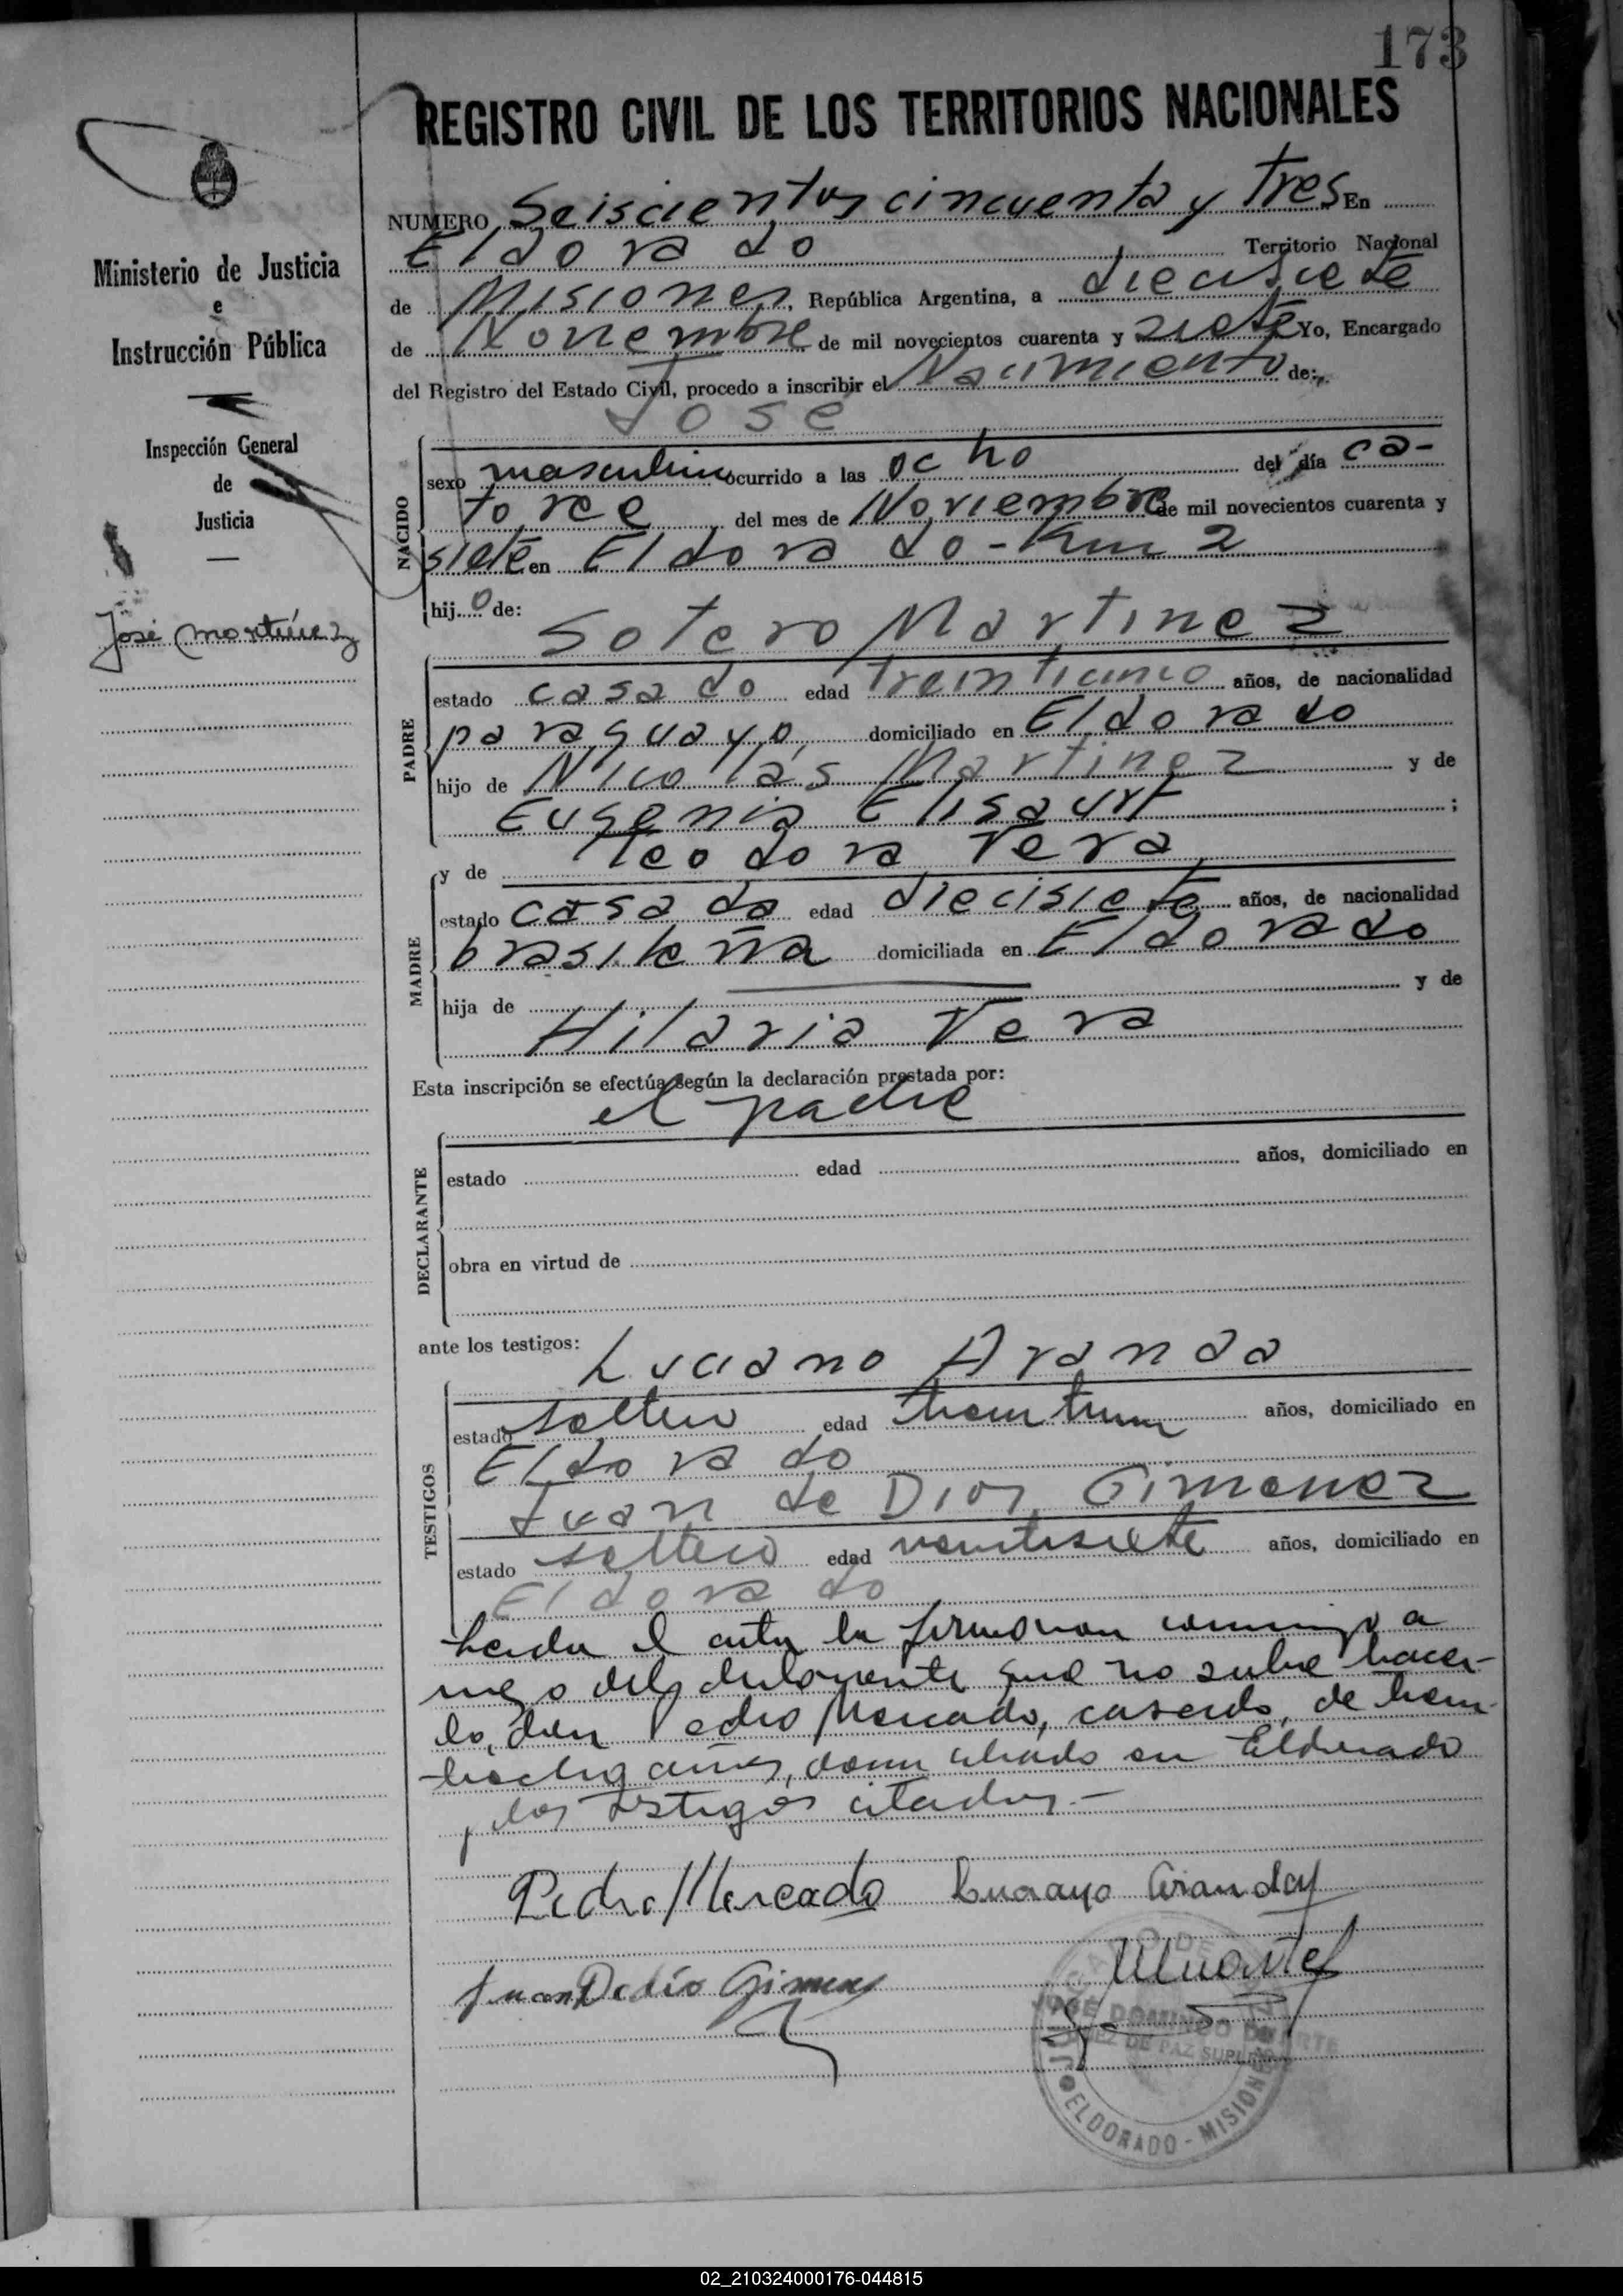 173
REGISTRO CIVIL DE LOS TERRITORIOS NACIONALES
Ministerio de Justicia
e
Instrucción Pública
Inspección General
de
Justicia
José Martínez
NUMERO Seiscientos cincuenta y tres En
Eldorado Territorio Nacional
de Misiones, República Argentina, a diecisiete
de Noviembre de mil novecientos cuarenta y siete Yo, Encargado
del Registro del Estado Civil, procedo a inscribir el Nacimiento de:
José
NACIDO
sexo masculino ocurrido a las ocho del día ca-
torce del mes de Noviembre de mil novecientos cuarenta y
siete en Eldorado - Km 2
hijo de:
Sotero Martinez
PADRE
estado casado edad treinticinco años, de nacionalidad
paraguayo domiciliado en Eldorado
hijo de Nicolás Martinez y de
Eugenia Elisaurt ;
y de Teodora Vera
MADRE
estado casada edad diecisiete años, de nacionalidad
brasileña domiciliada en Eldorado
hija de y de
Hilaria Vera
Esta inscripción se efectúa según la declaración prestada por:
el padre
DECLARANTE
estado edad años, domiciliado en
obra en virtud de
ante los testigos:
Luciano Aranda
TESTIGOS
estado soltero edad treintiun años, domiciliado en
Eldorado
Juan de Dios Gimenez
estado soltero edad veintisiete años, domiciliado en
Eldorado
Leida el acta la firmaron conmigo a
ruego del declarante que no sabe hacer-
lo, don Pedro Mercado, casado, de trein-
tiocho años, domiciliado en Eldorado
y los testigos citados.-
Pedro Mercado Luciano Aranda
Juan De Dío Gimenez
JOSÉ DOMINGO DUARTE
JUEZ DE PAZ SUPLENTE
ELDORADO - MISIONES
02_210324000176-044815